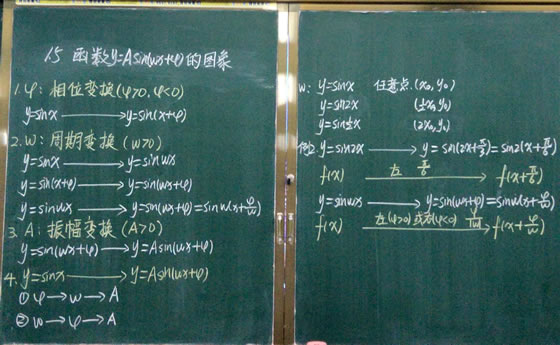 1.5 函数y=Asin(ωx+φ)的图象
1. φ: 相位变换(φ>0, φ<0)
y=sinx ⟶ y=sin(x+φ)
2. ω: 周期变换 (ω>0)
y=sinx ⟶ y=sinωx
y=sin(x+φ) ⟶ y=sin(ωx+φ)
y=sinωx ⟶ y=sin(ωx+φ)=sinω(x+φ/ω)
3. A: 振幅变换 (A>0)
y=sin(ωx+φ) ⟶ y=Asin(ωx+φ)
4. y=sinx ⟶ y=Asin(ωx+φ)
① φ→ω→A
② ω→φ→A
ω: y=sinx 任意点 (x₀, y₀)
y=sin2x (½x₀, y₀)
y=sin½x (2x₀, y₀)
例2. y=sin2x ⟶ y=sin(2x+π/3)=sin2(x+π/6)
f(x) 左 π/6 ⟶ f(x+π/6)
y=sinωx ⟶ y=sin(ωx+φ)=sinω(x+φ/ω)
f(x) 左(φ>0)或右(φ<0) |φ|/|ω| ⟶ f(x+φ/ω)